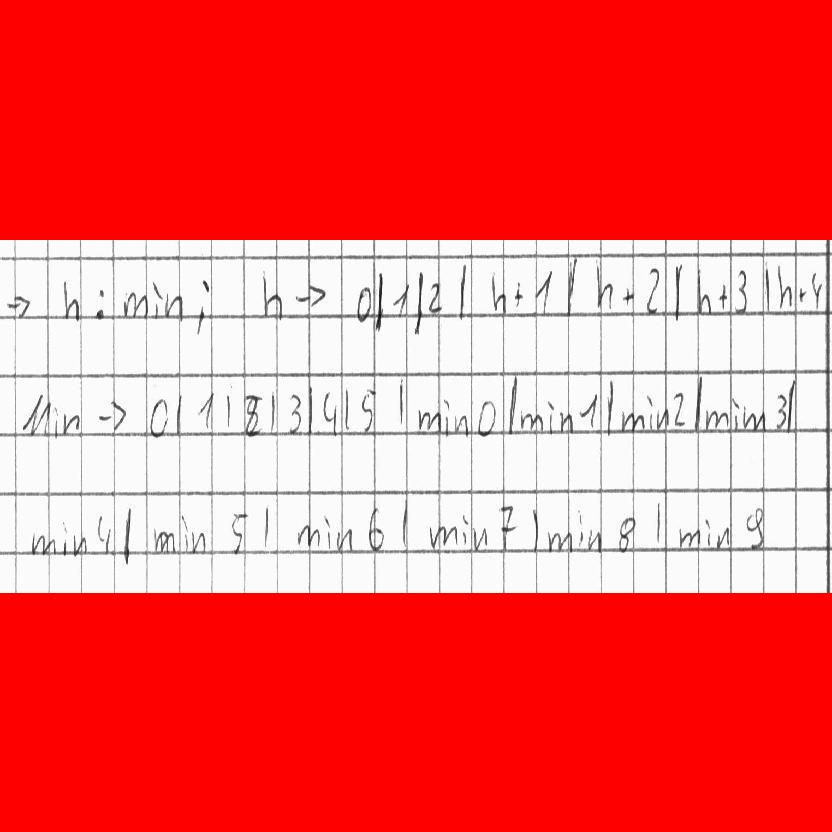 → h : min ; h → 0 | 1 | 2 | h+1 | h+2 | h+3 | h+4
Min → 0 | 1 | 8 | 3 | 4 | 5 | min 0 | min 1 | min 2 | mim 3 |
min 4 | min 5 | min 6 | min 7 | min 8 | min 9